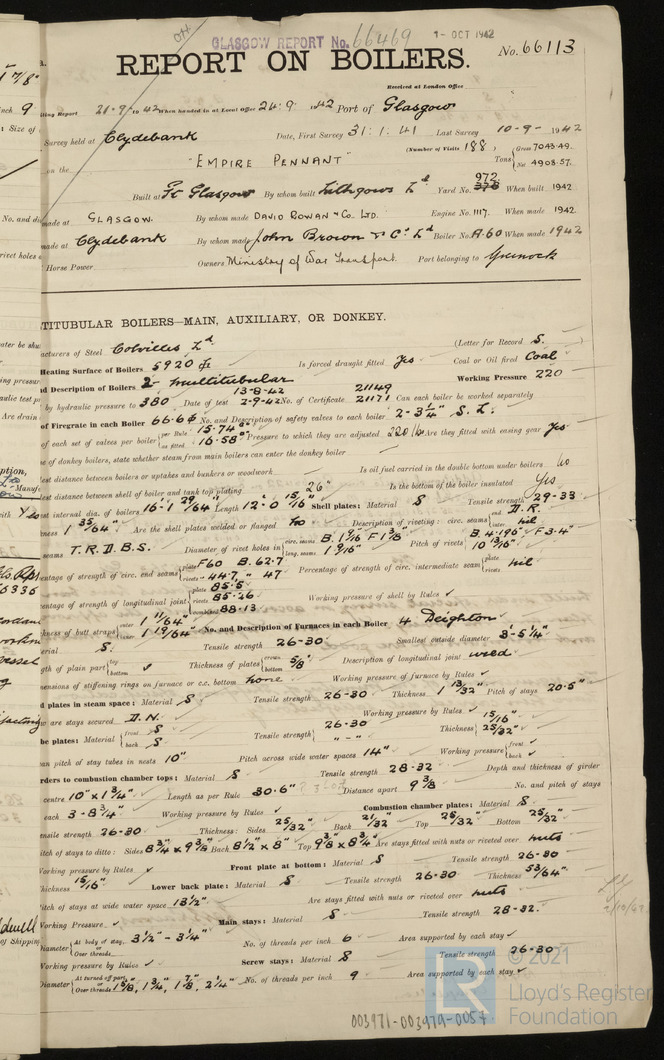 GLASGOW REPORT No. 66469 1 - OCT 1942
REPORT ON BOILERS. No. 66113
Received at London Office
21-9-1942 When handed in at Local Office 24.9.1942 Port of Glasgow
Survey held at Clydebank Date, First Survey 31.1.41 Last Survey 10-9-1942
on the (Number of Visits 188) Gross 7043.49.
"EMPIRE PENNANT" Tons Net 4908.57.
972
Built at Pt Glasgow By whom built Lithgows Ld Yard No. 378 When built 1942
made at GLASGOW. By whom made DAVID ROWAN & Co. LTD. Engine No. 1117. When made 1942.
made at Clydebank By whom made John Brown & Co Ld Boiler No. A.60 When made 1942
Horse Power Owners Ministry of War Transport. Port belonging to Greenock
TITUBULAR BOILERS—MAIN, AUXILIARY, OR DONKEY.
acturers of Steel Colvilles Ld (Letter for Record S.
Heating Surface of Boilers 5920 Is forced draught fitted Yes Coal or Oil fired Coal
nd Description of Boilers 2 multitubular Working Pressure 220
by hydraulic pressure to 380 Date of test 13-8-42 2-9-42 No. of Certificate 21149 21171 Can each boiler be worked separately
of Firegrate in each Boiler 66.6 No. and Description of safety valves to each boiler 2-3¼" S.L.
of each set of valves per boiler per Rule 15.74 as fitted 16.58 Pressure to which they are adjusted 220 lb Are they fitted with easing gear Yes
se of donkey boilers, state whether steam from main boilers can enter the donkey boiler
est distance between boilers or uptakes and bunkers or woodwork Is oil fuel carried in the double bottom under boilers No
est distance between shell of boiler and tank top plating 26" Is the bottom of the boiler insulated Yes
est internal dia. of boilers 16'-1 29/64" Length 12'-0 15/16" Shell plates: Material S Tensile strength 29-33
kness 1 35/64" Are the shell plates welded or flanged No Description of riveting: circ. seams end D.R. inter nil
seams T.R.D.B.S. Diameter of rivet holes in circ. seams B. 1 9/16" F 1 3/8" long. seams 1 9/16" Pitch of rivets B. 4.196" F 3.4" 10 13/16"
entage of strength of circ. end seams plate F60 B. 62.7 rivets 44.7 " 47 Percentage of strength of circ. intermediate seam plate rivets nil
entage of strength of longitudinal joint plate 85.5 rivets 85.26 combined 88.13 Working pressure of shell by Rules ✓
kness of butt straps outer 1 11/64" inner 1 19/64" No. and Description of Furnaces in each Boiler 4 Deighton
erial S. Tensile strength 26-30 Smallest outside diameter 3'-5¼"
gth of plain part top bottom ✓ Thickness of plates crown bottom 5/8" Description of longitudinal joint weld
mensions of stiffening rings on furnace or c.c. bottom none Working pressure of furnace by Rules ✓
d plates in steam space: Material S Tensile strength 26-30 Thickness 1 13/32" Pitch of stays 20.5"
w are stays secured D.N. Working pressure by Rules ✓
be plates: Material front S back S Tensile strength 26-30 " - " Thickness 15/16" 25/32"
an pitch of stay tubes in nests 10" Pitch across wide water spaces 14" Working pressure front back ✓
rders to combustion chamber tops: Material S Tensile strength 28-32 Depth and thickness of girder
centre 10" x 1¾" Length as per Rule 30.6" Distance apart 9 3/8 No. and pitch of stays
each 3-8¾" Working pressure by Rules ✓ Combustion chamber plates: Material S
ensile strength 26-30 Thickness: Sides 25/32" Back 21/32" Top 25/32" Bottom 25/32"
itch of stays to ditto: Sides 8¾ x 9 3/8 Back 8½" x 8" Top 9 3/8 x 8¾ Are stays fitted with nuts or riveted over nuts
Working pressure by Rules ✓ Front plate at bottom: Material S Tensile strength 26-30
Thickness 15/16" Lower back plate: Material S Tensile strength 26-30 Thickness 53/64"
Pitch of stays at wide water space 13½" Are stays fitted with nuts or riveted over nuts
Working Pressure ✓ Main stays: Material S Tensile strength 28-32.
Diameter At body of stay, or Over threads 3½" - 3¼" No. of threads per inch 6 Area supported by each stay ✓
Working pressure by Rules ✓ Screw stays: Material S Tensile strength 26-30
Diameter At turned off part, or Over threads 1 5/8", 1¾", 1 7/8", 2¼" No. of threads per inch 9 Area supported by each stay ✓
© 2021
Lloyd's Register
Foundation
003971-003979-0057